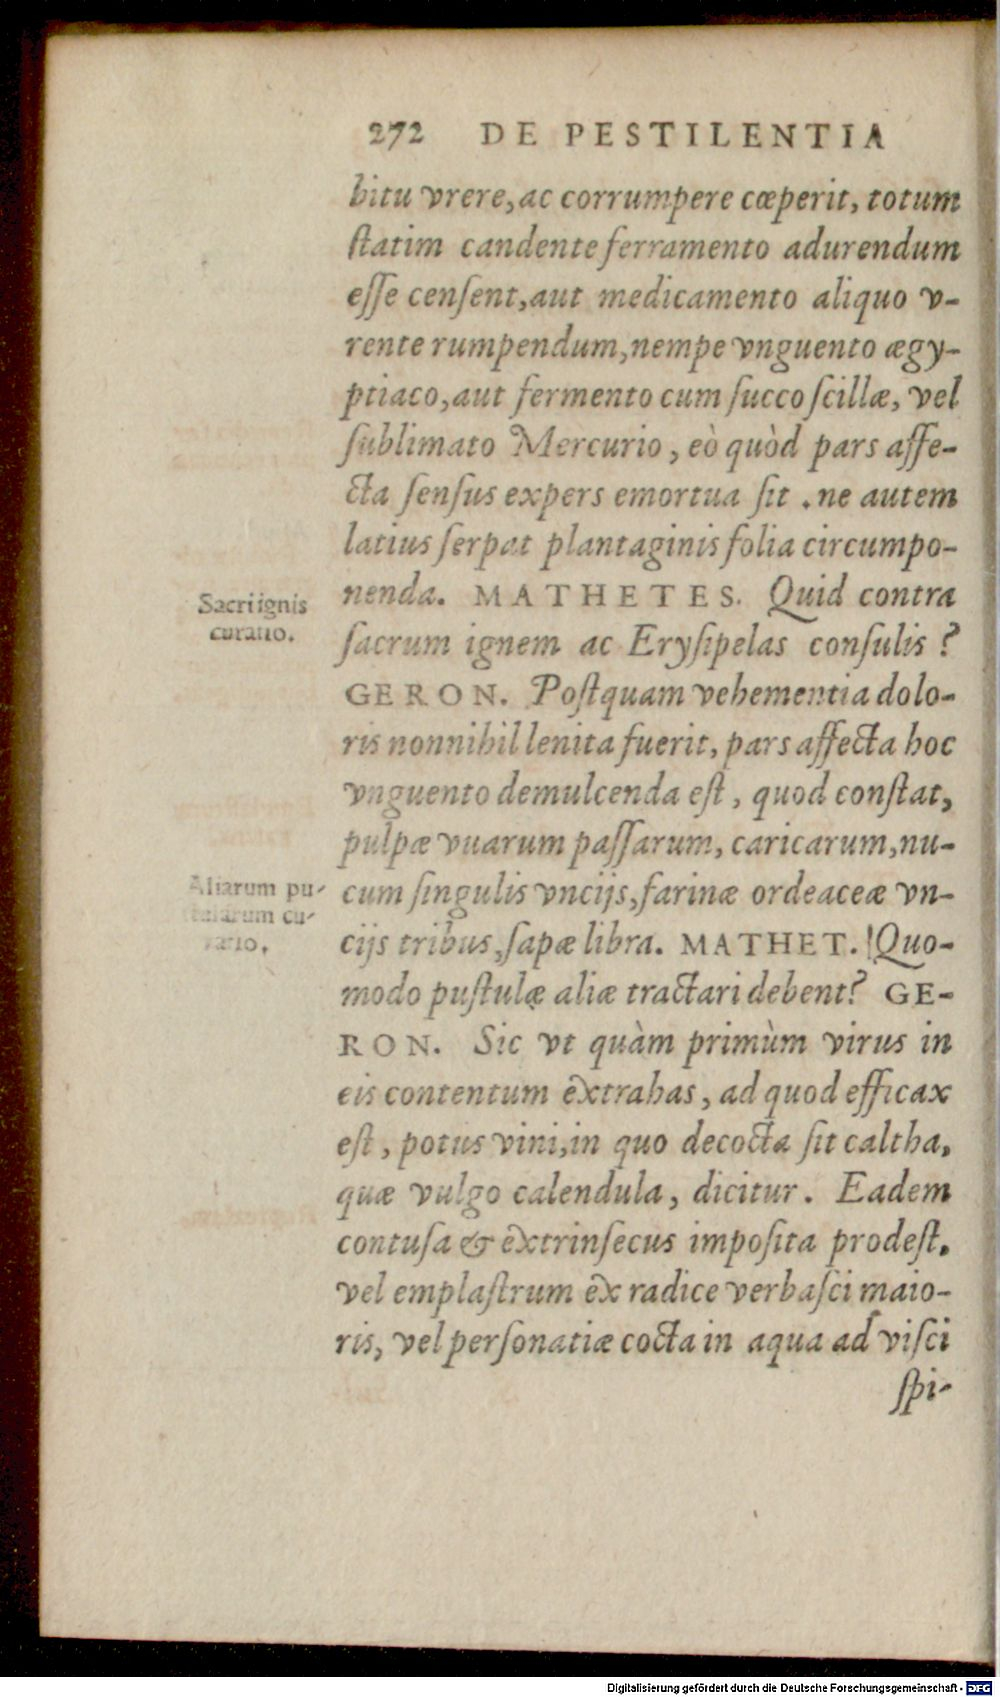 272 DE PESTILENTIA
bitu vrere, ac corrumpere cœperit, totum
ſtatim candente ferramento adurendum
eſſe cenſent, aut medicamento aliquo v-
rente rumpendum, nempe vnguento ægy-
ptiaco, aut fermento cum ſucco ſcillæ, vel
ſublimato Mercurio, eò quòd pars affe-
cta ſenſus expers emortua ſit . ne autem
latius ſerpat plantaginis folia circumpo-
nenda. MATHETES. Quid contra
Sacri ignis
curatio.
ſacrum ignem ac Eryſipelas conſulis ?
GERON. Poſtquam vehementia dolo-
ris nonnihil lenita fuerit, pars affecta hoc
vnguento demulcenda eſt, quod conſtat,
pulpæ vuarum paſſarum, caricarum, nu-
Aliarum pu-
ſtularum cu-
ratio.
cum ſingulis vncijs, farinæ ordeaceæ vn-
cijs tribus, ſapæ libra. MATHET. Quo-
modo puſtulæ aliæ tractari debent? GE-
RON. Sic vt quàm primùm virus in
eis contentum extrahas, ad quod efficax
eſt, potus vini, in quo decocta ſit caltha,
quæ vulgo calendula, dicitur. Eadem
contuſa & extrinſecus impoſita prodeſt.
vel emplaſtrum ex radice verbaſci maio-
ris, vel perſonatiæ cocta in aqua ad viſci
ſpi-
Digitalisierung gefördert durch die Deutsche Forschungsgemeinschaft - DFG